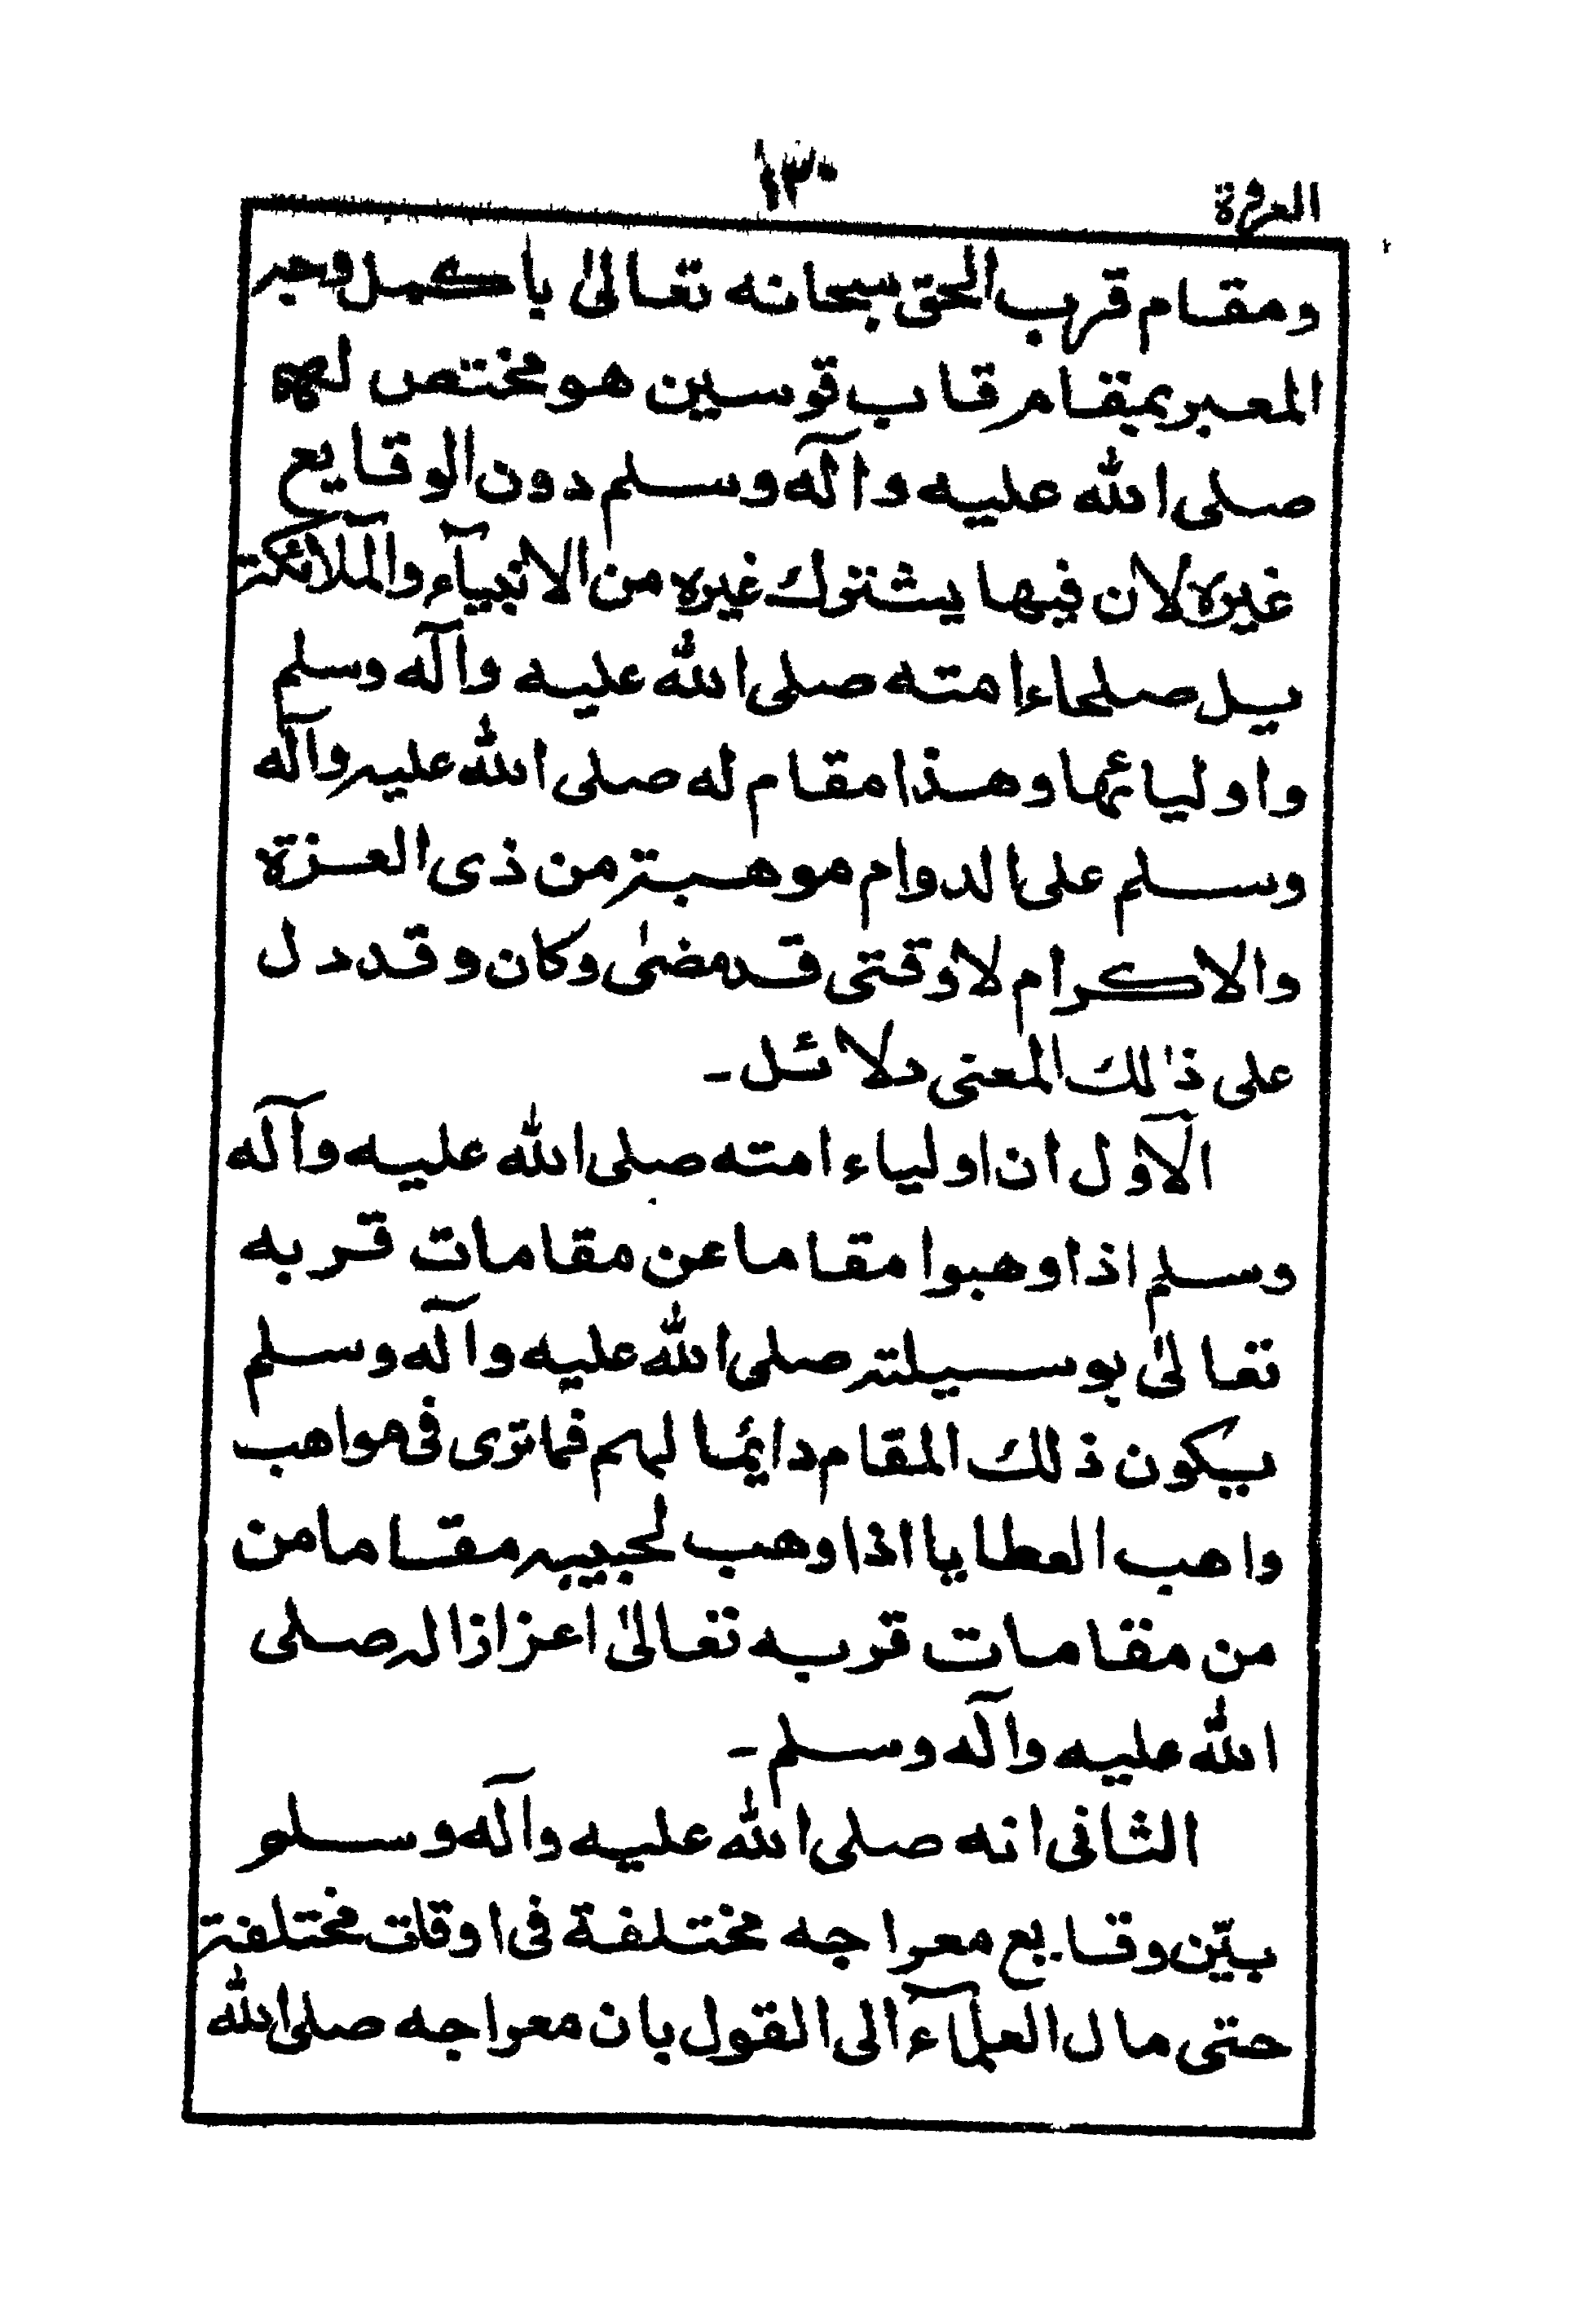 ١٣٠
ومقام قرب الحق سبحانه تعالىٰ باكمل وجه
المعبر بمقام قاب قوسين هو مختص لهم
صلى الله عليه وآله وسلم دون الوقايع
غيره لان فيها يشترك غيره من الانبيآء والملآئكة
بل صلحاء امته صلى الله عليه وآله وسلم
واوليائها وهذا مقام له صلى الله عليه وآله
وسلم على الدوام موهبة من ذى العزة
والاكرام لا وقتى قد مضىٰ وكان وقد دل
على ذٰلك المعنى دلائل ۔
الآول ان اولياء امته صلى الله عليه وآله
وسلم اذا وهبوا مقاما عن مقامات قربه
تعالىٰ بوسيلة صلى الله عليه وآله وسلم
يكون ذلك المقام دائما لهم فما ترى فى مواهب
واهب العطايا اذا وهب لحبيبه مقاما من
من مقامات قربه تعالىٰ اعزازا له صلى
الله عليه وآله وسلم ۔
الثانى انه صلى الله عليه وآله وسلم
بيّن وقايع معراجه مختلفة فى اوقات مختلفة
حتى مال العلمآء الى القول بان معراجه صلى الله